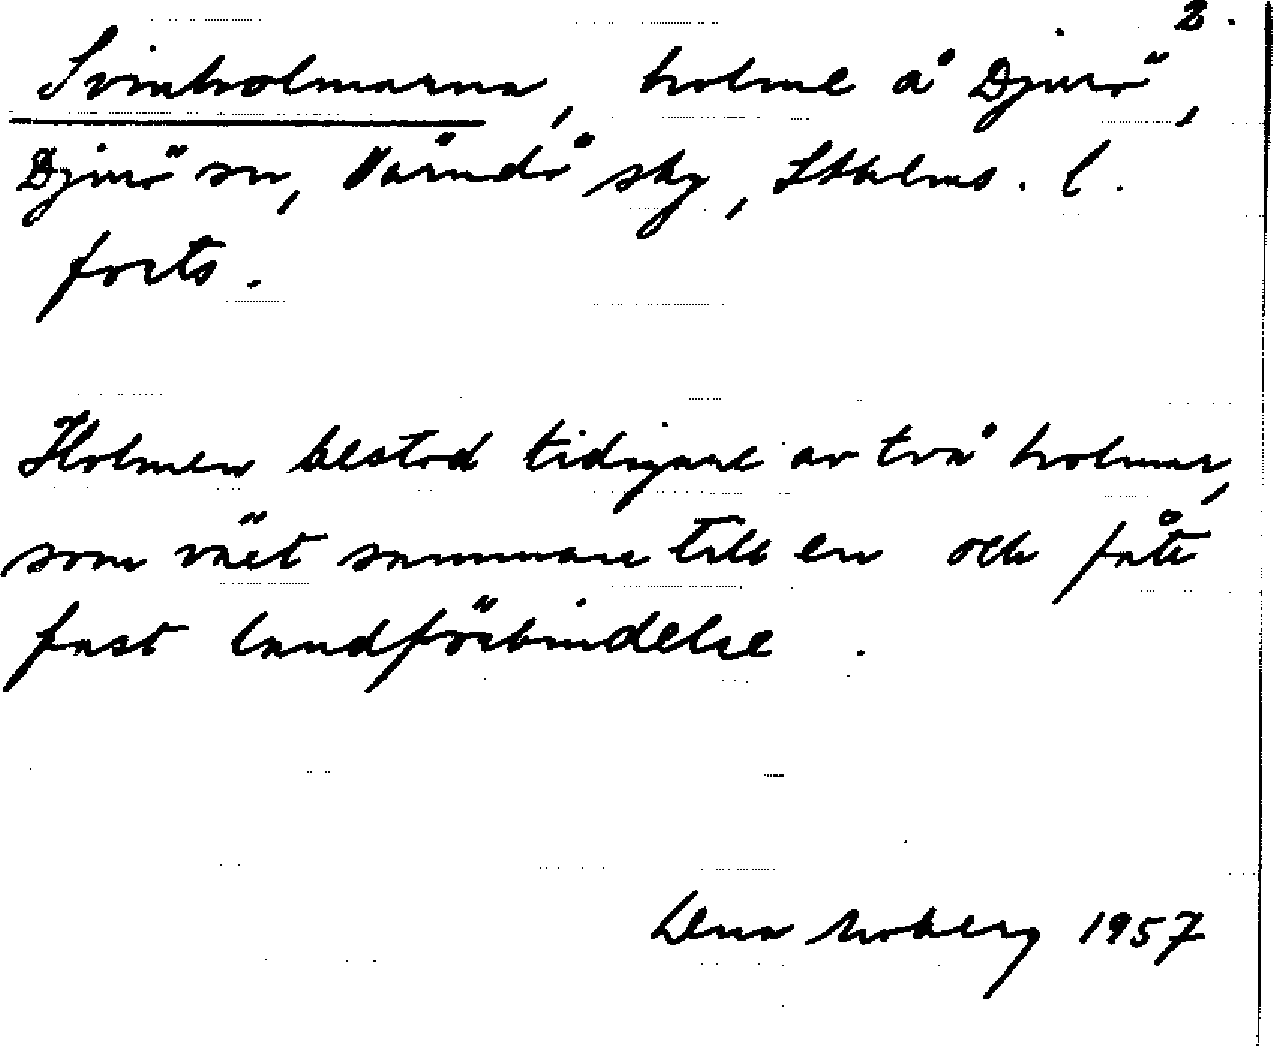 2.
Svinholmarna, holme å Djurö,
Djurö sn, Värmdö sky, Sthlms. l.
forts.
Holmen bestod tidigare av två holmar,
som växt samman till en och fått
fast landförbindelse.
Lena Moberg 1957